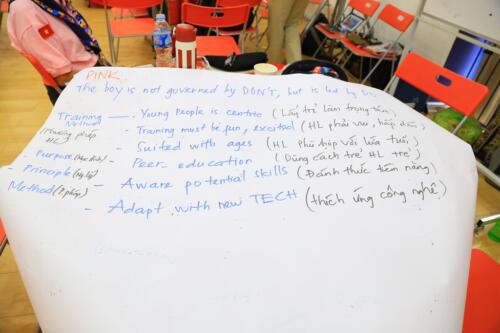 PINK
The boy is not governed by DON'T, but is led by
Training Method
(Phương pháp HL)
- Purpose (Mục đích)
- Principle (Ng lý)
Method (P. pháp)
- Young people is centre (Lấy trẻ làm trọng tâm)
- Training must be fun, excited (HL phải vui, hấp dẫn)
- Suited with ages (HL Phù hợp với lứa tuổi)
- Peer education (Dùng cách trẻ HL trẻ)
- Aware potential skills (Đánh thức tiềm năng)
- Adapt with new TECH (thích ứng công nghệ)